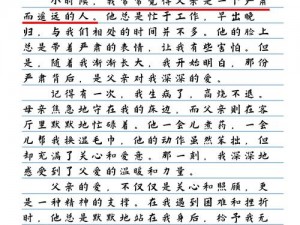 小时候，我常常觉得父亲是一个严肃
而遥远的人。他总是忙于工作，早出晚
归，与我们相处的时间并不多。他的脸上
总是带着严肃的表情，让我有些害怕。但
是，随着我渐渐长大，我开始明白，那份
严肃背后，是父亲对我深深的爱。
记得有一次，我生病了，高烧不退。
母亲焦急地守在我的床边，而父亲则在客
厅里默默地忙碌着。他一会儿煮药，一会
儿帮我换温毛巾，他的动作虽然笨拙，但
却充满了关心和爱意。那一刻，我深深地
感受到了父爱的温暖和力量。
父亲的爱，不仅仅是关心和照顾，更
是一种精神的支撑。在我遇到困难和挫折
时，他总是默默地站在我身后，给予我无